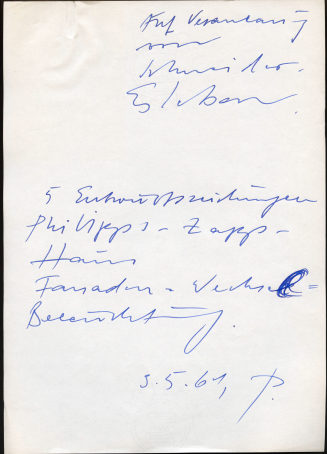 Auf Veranlassung
von
Schneider-
Esleben.
5 Entwurfszeichnungen
Philipps-Zapp-
Haus
Fassaden-Wechsel=
Beleuchtung.
3.5.61, P.